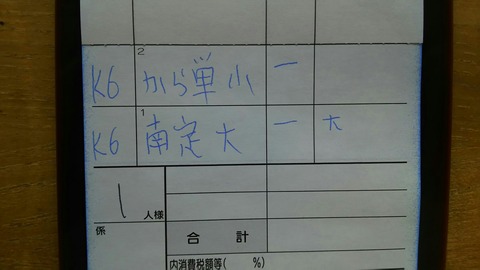 2
K6 から単小 一
1
K6 南定大 一 大
1 人様
係
合 計
内消費税額等( %)